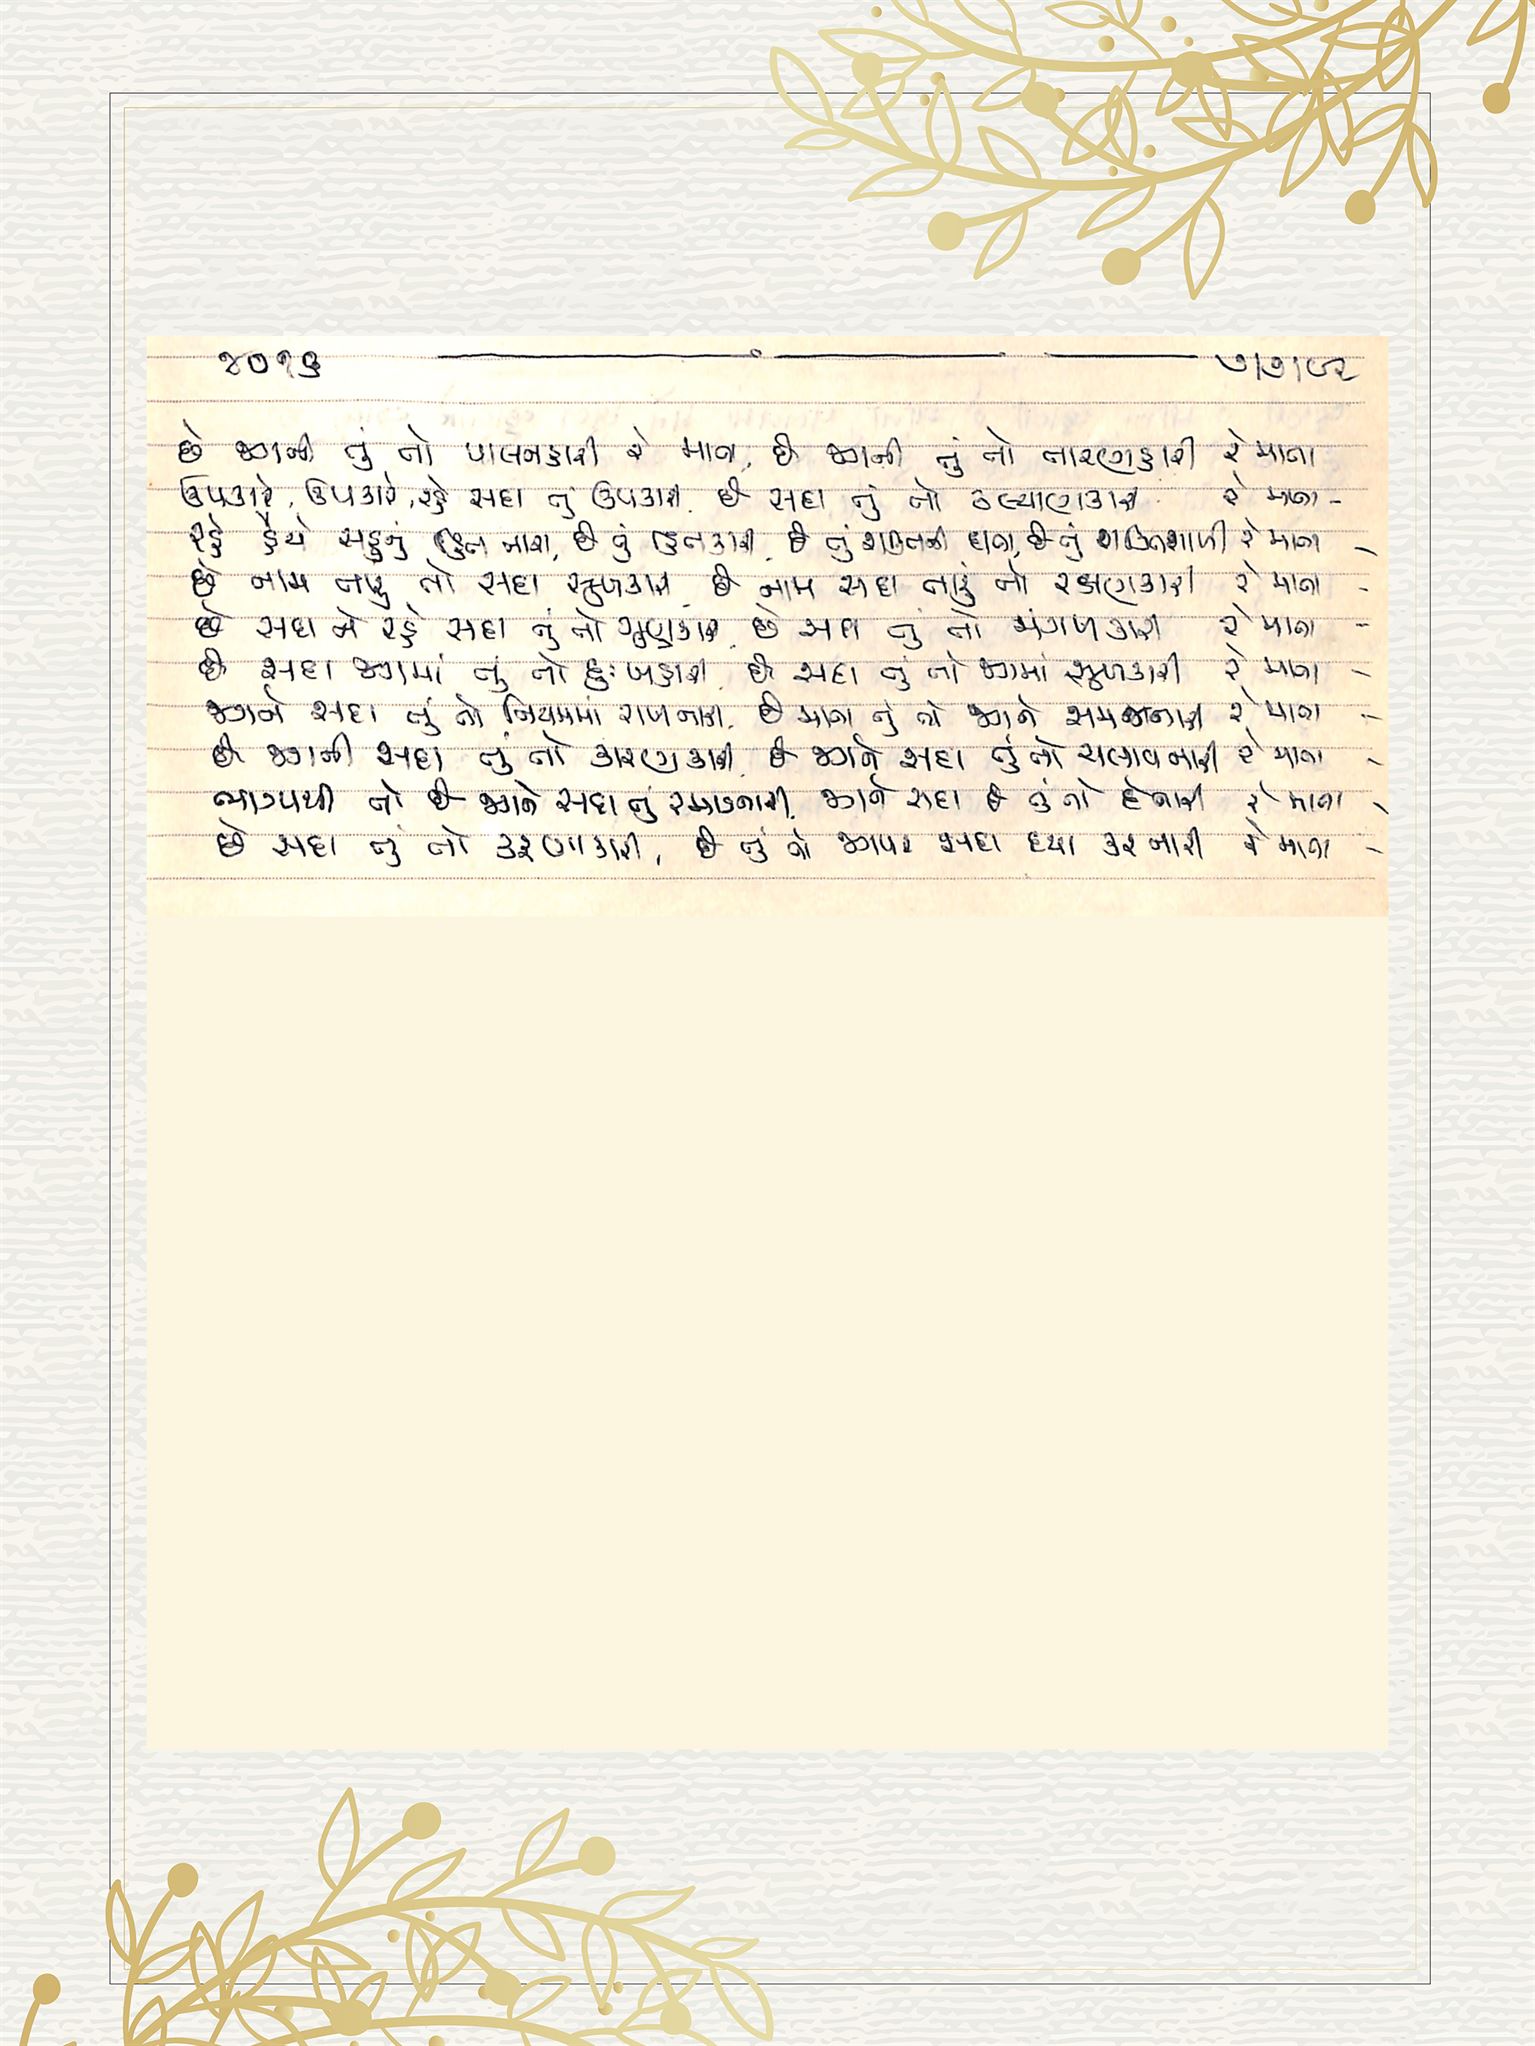 ૪૦૧૬ ૭/૭/૯૨
છે જગની તું તો પાલનકારી રે માતા, છે જગની તું તો તારણકારી રે માતા
ઉપકારે, ઉપકારે, રહે સદા તું ઉપકારી, છે સદા તું તો કલ્યાણકારી રે માતા -
રહે હૈયે સહુનું હિત તારા, છે તું હિતકારી, છે તું શક્તિની દાતા, છે તું શક્તિશાળી રે માતા -
છે નામ તારું તો સદા સુખકારી, છે નામ સદા તારું તો રક્ષણકારી રે માતા -
છે સદા ને રહે સદા તું તો ગુણકારી, છે સદા તું તો મંગળકારી રે માતા -
છે સદા જગમાં તું તો દુઃખહારી, છે સદા તું તો જગમાં સુખકારી રે માતા -
જગને સદા તું તો નિયમમાં રાખનારી, છે માતા તું તો જગને સમજનારી રે માતા -
છે જગની સદા તું તો કારણકારી, છે જગને સદા તું તો ચલાવનારી રે માતા -
ભાગ્યથી તો છે જગને સદા તું રમાડનારી, જગને સદા છે તું તો દેનારી રે માતા -
છે સદા તું તો કરુણાકારી, છે તું તો જગપર સદા દયા કરનારી રે માતા -